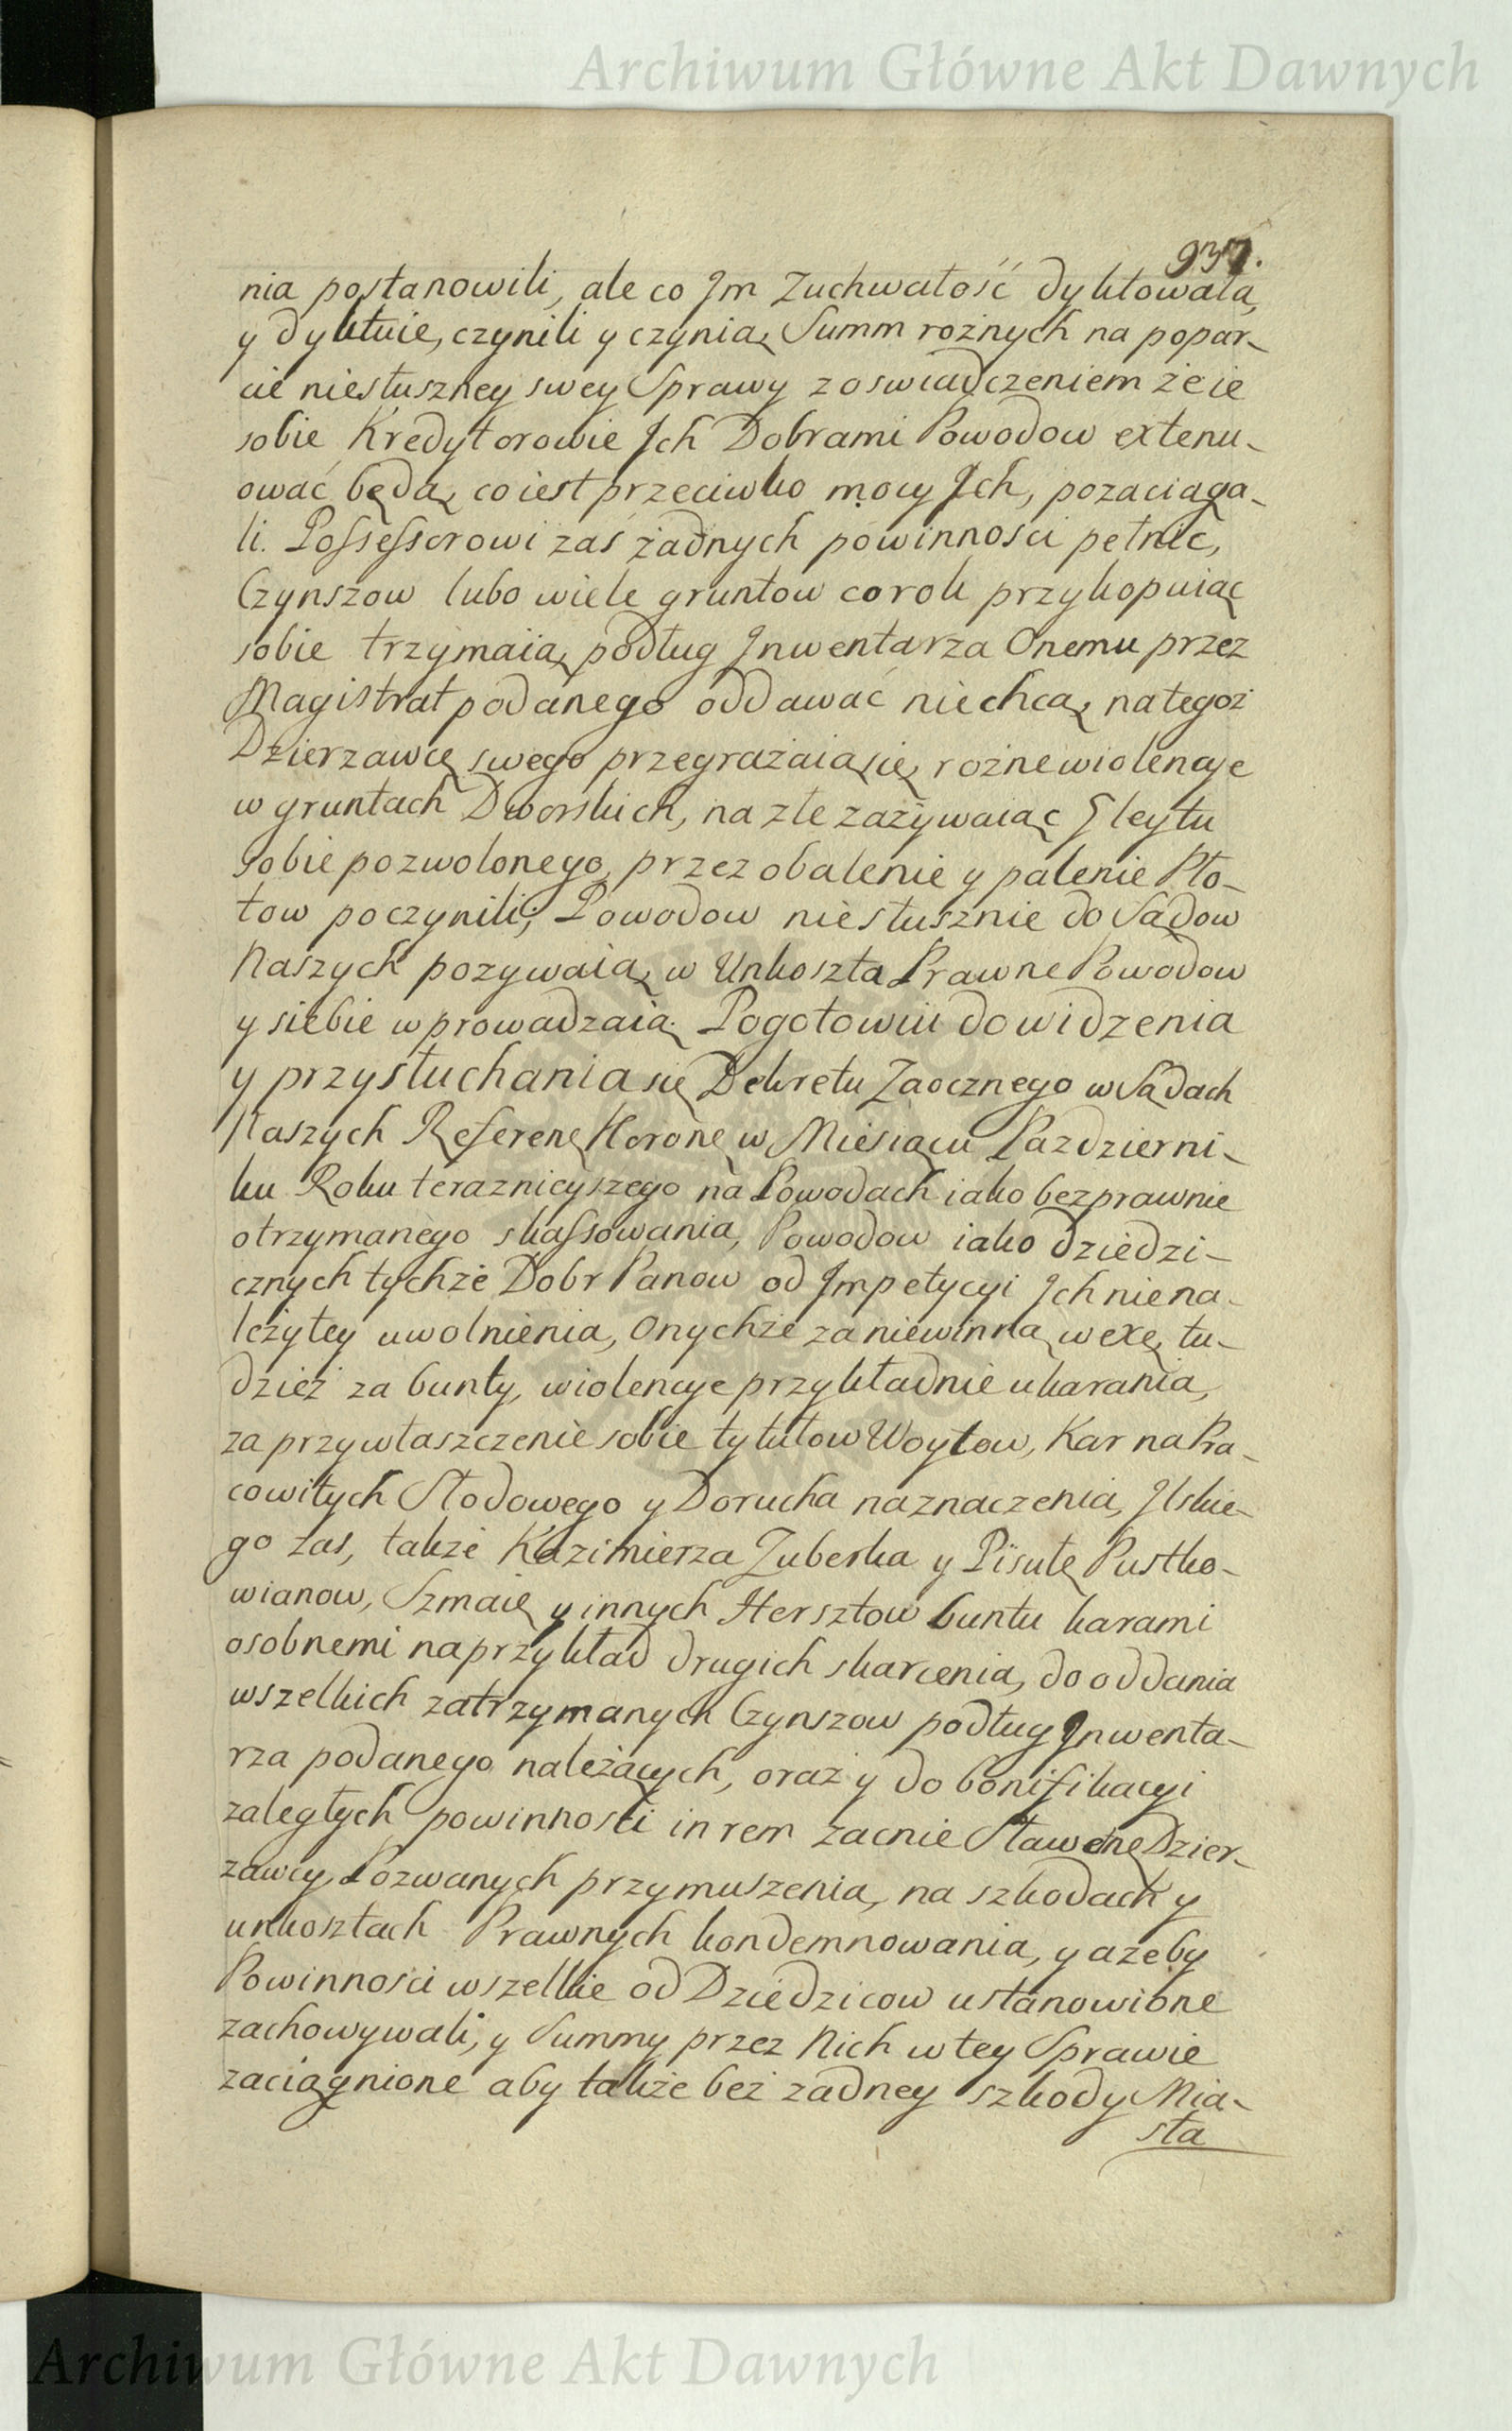 Archiwum Główne Akt Dawnych
937.
nia postanowili, ale co Jm Zuchwałość dyktowała,
y dyktuie, czynili y czynią, Summ rożnych na popar-
cie niesłuszney swey Sprawy z oswiadczeniem że ie
sobie Kredytorowie Jch Dobrami Powodow extenu-
ować będą, co iest przeciwko mocy Jch, pozaciąga-
li. Possessorowi zaś żadnych powinnosci pełnić,
Czynszow lubo wiele gruntow co rok przykopuiąc
sobie trzymaią, podług Jnwentarza Onemu przez
Magistrat podanego oddawać niechcą, na tegoż
Dzierzawcę swego przegrażaią się, rożne wiolencye
w gruntach Dworskich, na złe zażywaiąc Gleytu
sobie pozwolonego, przez obalenie y palenie Pło-
tow poczynili; Powodow niesłusznie do Sądow
Naszych pozywaią, w Unkoszta Prawne Powodow
y siebie wprowadzaią. Pogotowiu do widzenia
y przysłuchania się Dekretu Zaocznego w Sądach
Naszych Referenę Koronę w Miesiącu Pazdzierni-
ku Roku teraznieyszego na Powodach iako bezprawnie
otrzymanego skassowania, Powodow iako dziedzi-
cznych tychże Dobr Panow od Jmpetycyi Jch niena-
leżytey uwolnienia, Onychże za niewinną wexę, tu-
dzież za bunty, wiolencye przykładnie ukarania,
za przywłaszczenie sobie tytułow Woytow, Kar na Pra-
cowitych Słodowego y Dorucha naznaczenia, Jlskie-
go zas, także Kazimierza Zuberka y Pisulę Pustko-
wianow, Szmaię y innych Hersztow buntu karami
osobnemi na przykład drugich skarcenia, do oddania
wszelkich zatrzymanych Czynszow podług Jnwenta-
rza podanego należących, oraz y do bonifikacyi
zaległych powinnosci in rem zacnie Sławonę Dzier-
zawcy Pozwanych przymuszenia, na szkodach y
unkosztach Prawnych kondemnowania, y ażeby
Powinnosci wszelkie od Dziedzicow ustanowione
zachowywali, y Summy przez Nich w tey Sprawie
zaciągnione aby także bez zadney szkody Mia-
sta
Archiwum Główne Akt Dawnych